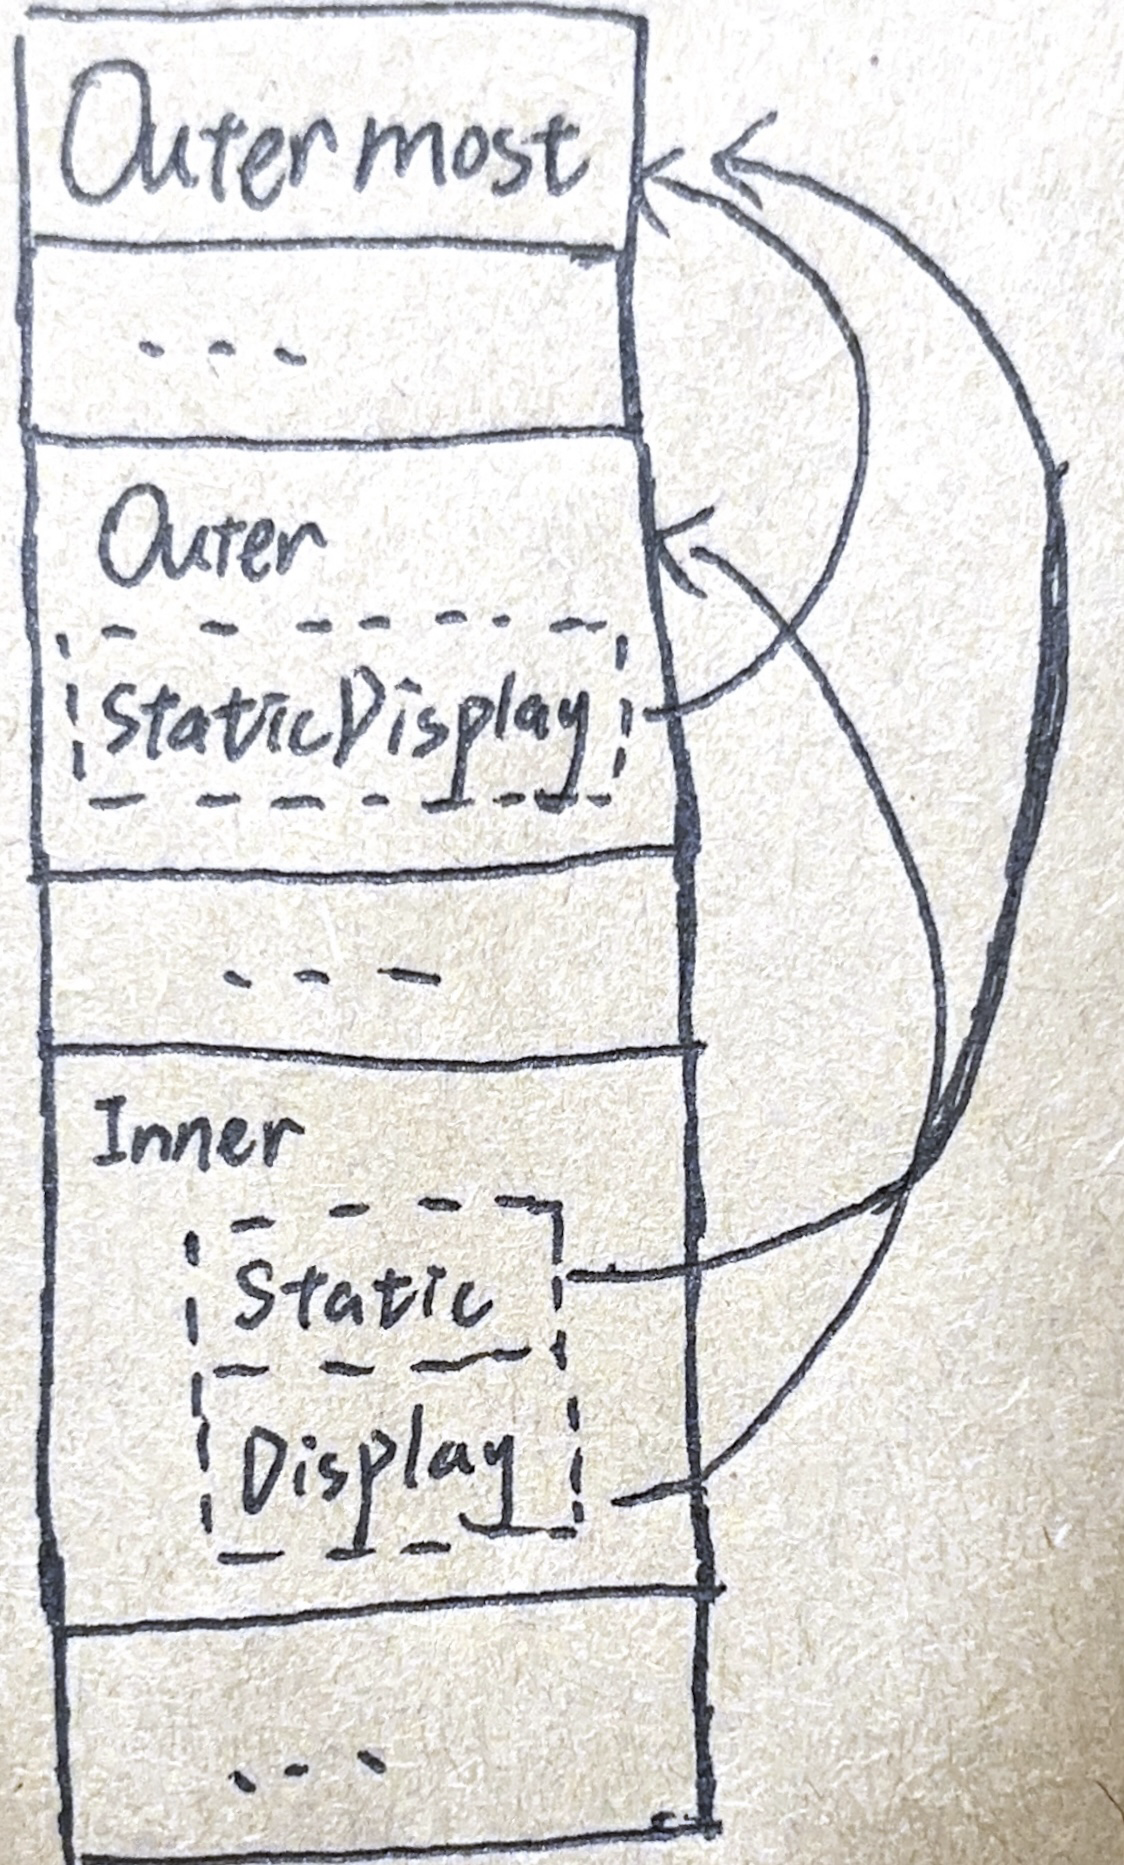 Outermost
---
Outer
StaticDisplay
---
Inner
Static
Display
---